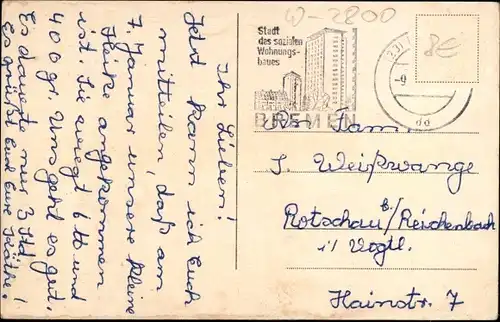 Ihr Lieben!
Jetzt kann ich Euch
mitteilen, daß am
7. Januar unsere kleine
Heike angekommen
ist. Sie wiegt 6 ℔ und
400 gr. Uns geht es gut.
Es dauerte nur 3 Std.
Es grüßt Euch Eure Käthe!
W-2800
8€
Stadt
des sozialen
Wohnungs-
baues
BREMEN
-9
dd
An Fam.
S. Weißwange
Rotschau b/ Reichenbach
i/ Vogtl.
Hainstr. 7